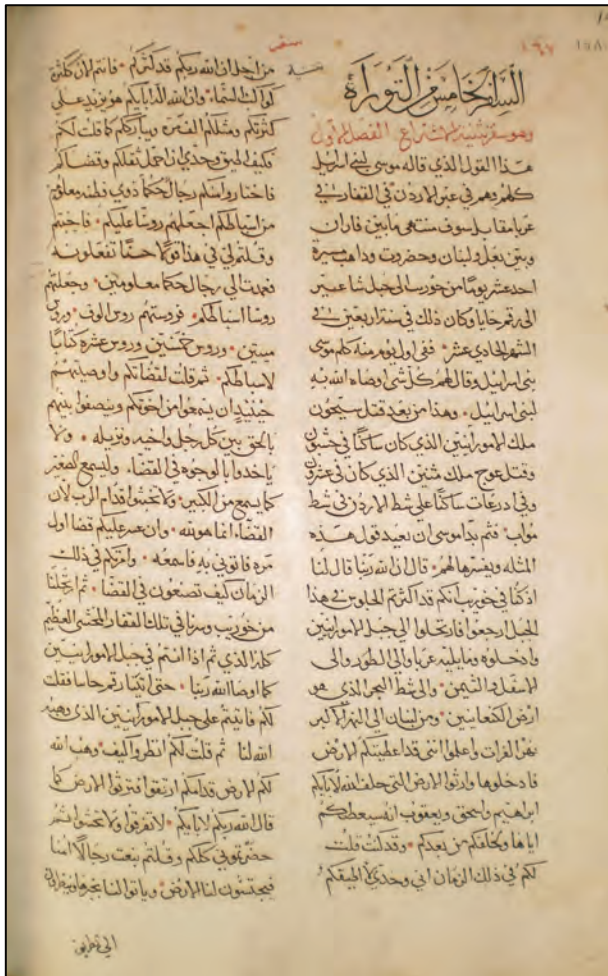 السفر الخامس من التوراة
وهو سفر تثنية الاشتراع الفصل الاول
هذا القول الذي قاله موسى لبني اسرايل
كلهم وهم في عبر الاردن في القفار في
عربا مقابل سوف منتهى مابين فاران
وبين تفل ولبنان وحضروت وداهب مسيرة
احد عشر يوما من حورب الى جبل شاعير
الى رقم حايا وكان ذلك في سنة اربعين في
الشهر الحادي عشر ففي اول يوم منه كلم موسى
بني اسرايل وقال لهم كل شي اوصاه الله به
لبني اسرايل وهذا من بعد قتل سيحون
ملك الامورانيين الذي كان ساكنا في حشبون
وقتل عوج ملك متنين الذي كان في عشرون
وفي ادرعات ساكنا على شط الاردن في شط
مواب فثم بدا موسى ان يعيد قول هذه
المثله ويفسرها لهم قال ان الله ربنا قال لنا
اذ كنا في حورب انكم قد اكثرتم الجلوس في هذا
الجبل ارجعوا فارتحلوا الى جبل الامورانيين
وادخلوه وما يليه عربا والى الطور والى
الاسفل والتيمن والى شط البحر الذي هو
ارض الكنعانيين ومن لبنان الى النهر الاكبر
نهر الفرات واعلموا انني قد اعطيتكم الارض
فادخلوها وارثوا الارض التي حلف الله لابايكم
ابراهيم واسحق ويعقوب انه سيعطيكم
اياها ويخلفكم من بعدكم وقد كنت قلت
لكم في ذلك الزمان اني وحدي لا اطيقكم
من اجل ان الله ربكم قد كثركم فانتم الان كثرة
كواكب السما وان الله اله ابايكم هو يزيد على
كثرتكم ومثلكم الف مره ويبارككم كما قلت لكم
فكيف اطيق وحدي ان احمل ثقلكم وقضاكم
فاختاروا منكم رجال حكما ذوي فطنه معلومين
من اسباطكم اجعلهم روسا عليكم فاجبتم
وقلتم لي في هذا قولا حسنا تفعلونه
فعمدت الى رجال حكما معلومين وجعلتهم
روسا اسباطكم فروستهم روس الوف وروس
ميتين وروس خمسين وروس عشره كتابا
لاسباطكم ثم قلت لقضاتكم واوصيتهم
حينيذ ان يسمعوا من اخوتكم وينصفوا بينهم
بالحق بين كل رجل واخيه ونزيله ولا
ياخدوا بالوجوه في القضا وليسمع الصغير
كما يسمع من الكبير ولا تخشوا قدام الرب لان
القضا انما هو لله وان عسر عليكم قضا اول
مره فاتوني به فاسمعه وامرتكم في ذلك
الزمان كيف تصنعون في القضا ثم ارتحلنا
من حوريب وسرنا في تلك القفار المخشي العظيم
كله الذي ثم اذا انتم في جبل الامورانيين
كما اوصا الله ربنا حتى اتينا رقم حاسا فقلت
لكم فاتيتم على جبل الامورانيين الذي وهبه
الله لنا ثم قلت لكم انظروا كيف وهب الله
لكم الارض قدامكم ارتقوا فترثوا الارض كما
قال الله ربكم لابايكم لا تفرقوا ولا تخشوا ثم
حضرتوني كلكم وقلتم نبعث رجالا امنا
فيجتسون لنا الارض وياتوا لنا بخبرها